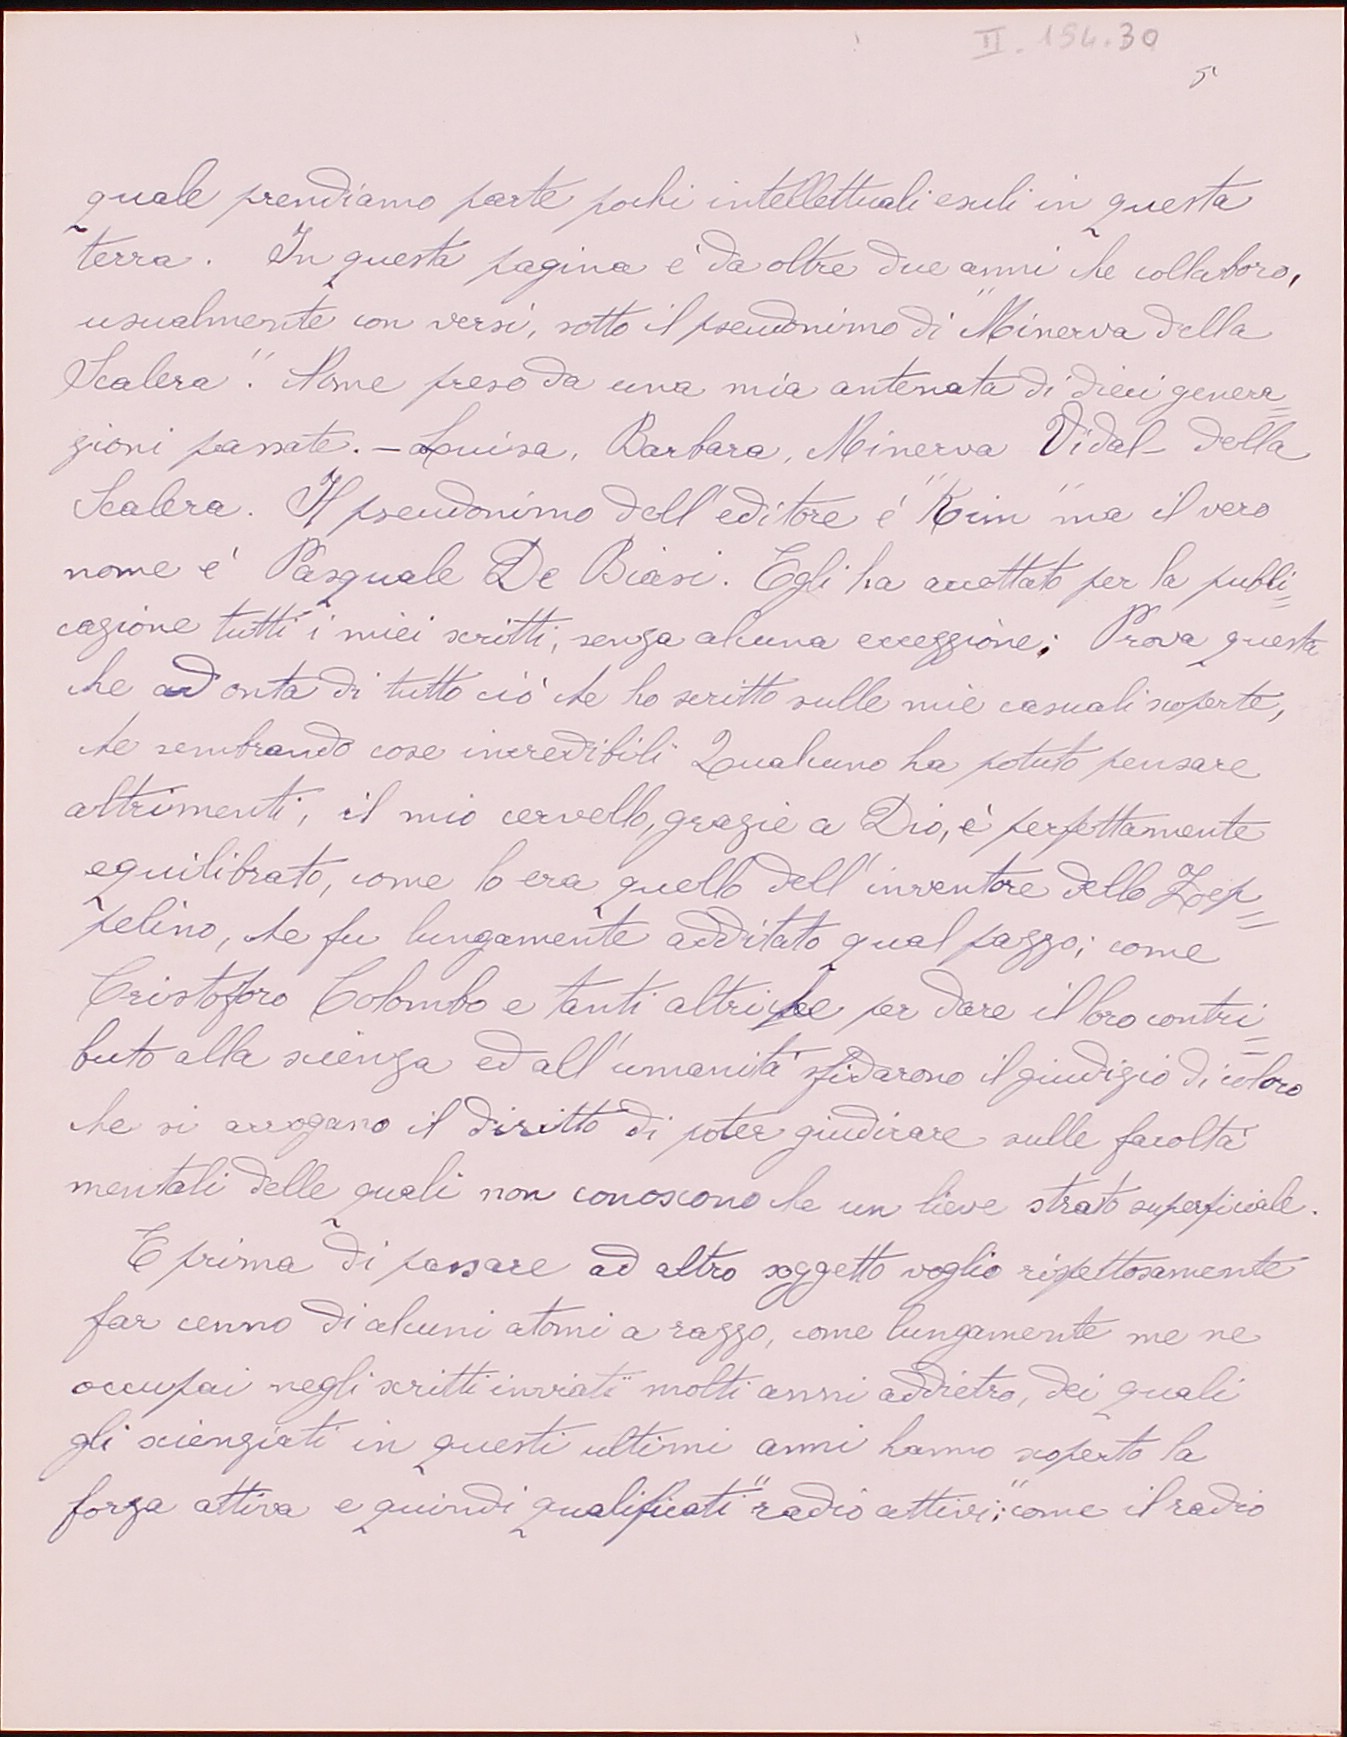 II. 154.30
5
quale prendiamo parte pochi intellettuali esuli in questa
terra. In questa pagina e' da oltre due anni che collaboro,
usualmente con versi, sotto il pseudonimo di "Minerva della
Scalera". Nome preso da una mia antenata di dieci genera=
zioni passate. – Luisa, Barbara, Minerva Vidal – della
Scalera. Il pseudonimo dell'editore e' "Kim" ma il vero
nome e' Pasquale De Biasi. Egli ha accettato per la pubbli=
cazione tutti i miei scritti, senza alcuna eccezzione; Prova questa
che ad onta di tutto ciò che ho scritto sulle mie casuali scoperte,
che sembrando cose incredibili Qualcuno ha potuto pensare
altrimenti, il mio cervello, grazie a Dio, è perfettamente
equilibrato, come lo era quello dell'inventore dello Zep=
pelino, che fu lungamente additato qual pazzo; come
Cristoforo Colombo e tanti altri che per dare il loro contri=
buto alla scienza ed all'umanità sfidarono il giudizio di coloro
che si arrogano il diritto di poter giudicare sulle facoltà
mentali delle quali non conoscono che un lieve strato superficiale.
E prima di passare ad altro soggetto voglio rispettosamente
far cenno di alcuni atomi a razzo, come lungamente me ne
occupai negli scritti inviati molti anni addietro, dei quali
gli scienziati in questi ultimi anni hanno scoperto la
forza attiva e quindi qualificati "radio attivi;" come il radio